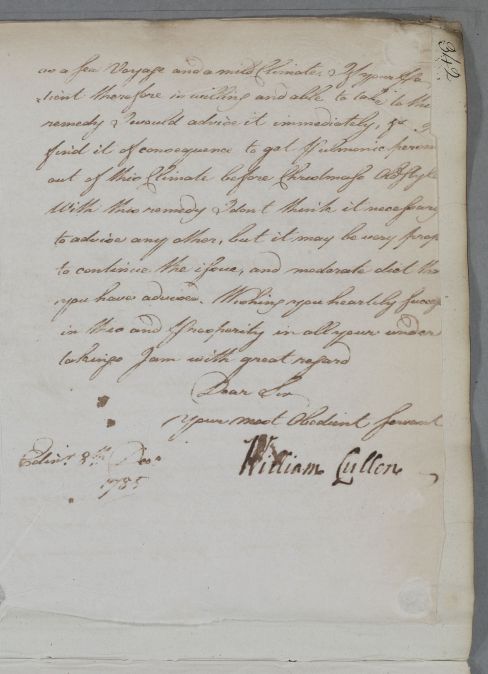 342
as a Sea Voyage and a mild Climate. If your Pa
tient therefore is willing and able to take to the
remedy I would advise it immediately, for I
find it of consequence to get Pulmonic person
out of this Climate before Christmass Old Style
With this remedy I dont think it necessary
to advise any other, but it may be very prop
to continue the issue, and moderate diet tha
you have advised. Wishing you heartily succe
in this and Prosperity in all your under
takings I am with great regard
Dear Sir
your most Obedient servant
William Cullen
Edinr. 8th Decr
1785